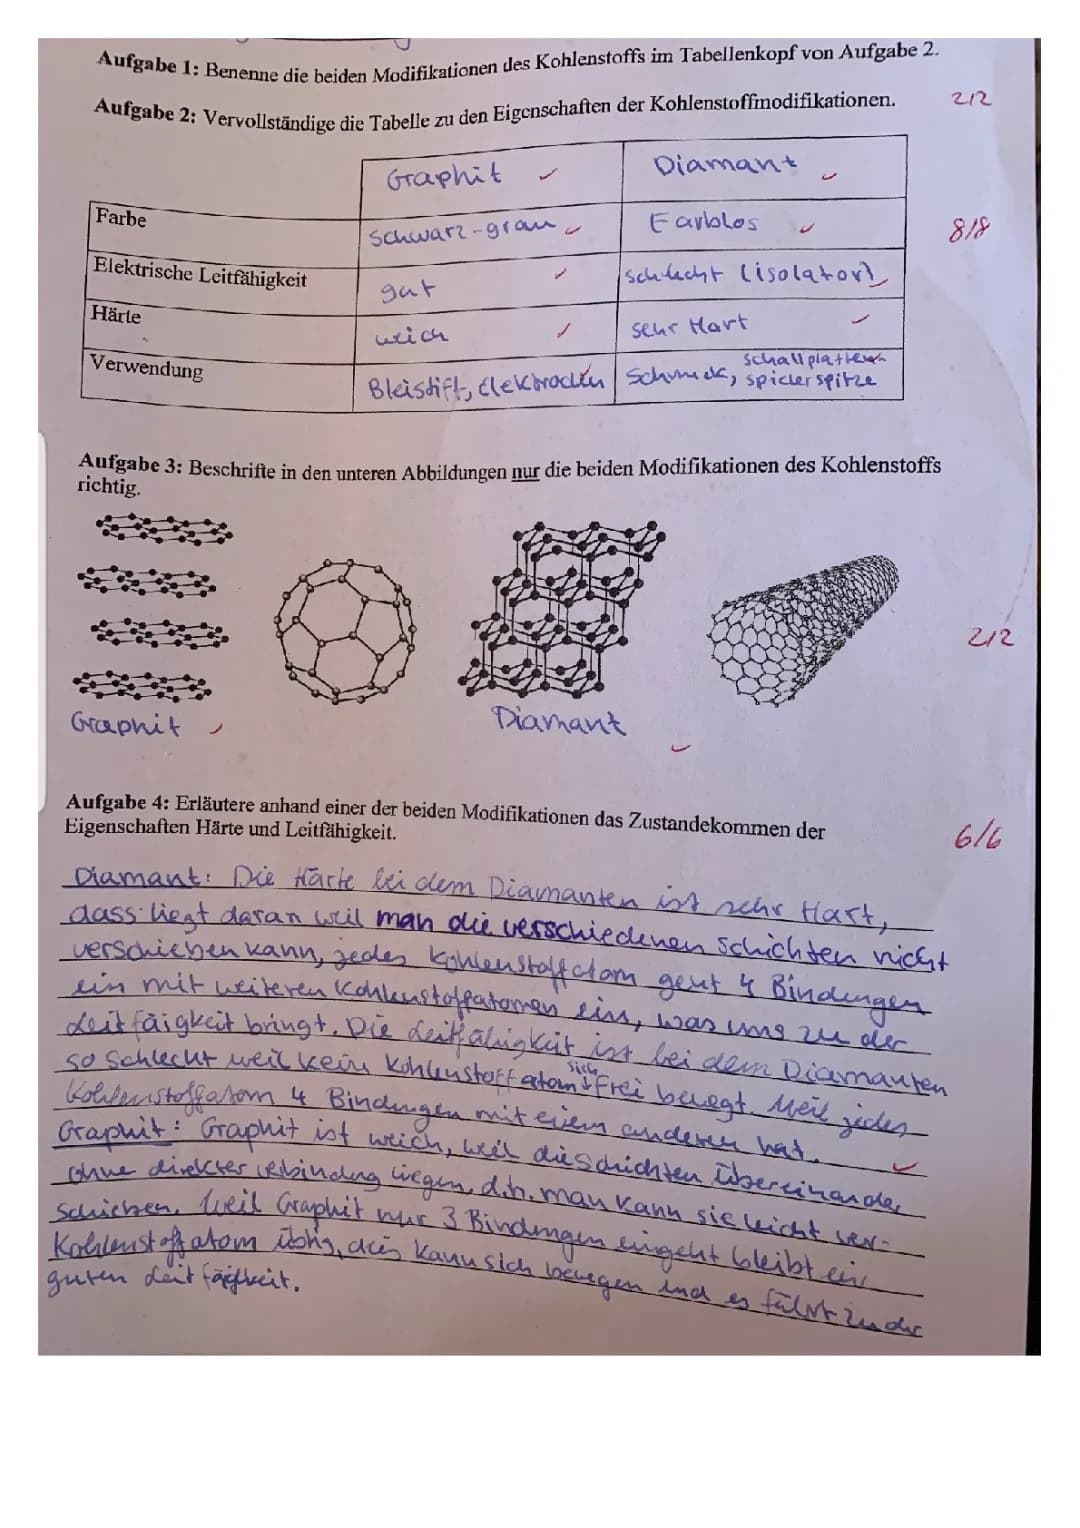 Aufgabe 1: Benenne die beiden Modifikationen des Kohlenstoffs im Tabellenkopf von Aufgabe 2.
2/2
Aufgabe 2: Vervollständige die Tabelle zu den Eigenschaften der Kohlenstoffmodifikationen.
Graphit Diamant
Farbe schwarz-grau Farblos
8/8
Elektrische Leitfähigkeit gut schlecht (isolator)
Härte weich sehr Hart
Verwendung Bleistift, Elektroden Schmuck, Schallplatten spielerspitze
Aufgabe 3: Beschrifte in den unteren Abbildungen nur die beiden Modifikationen des Kohlenstoffs
richtig.
2/2
Graphit Diamant
Aufgabe 4: Erläutere anhand einer der beiden Modifikationen das Zustandekommen der
Eigenschaften Härte und Leitfähigkeit.
6/6
Diamant: Die Härte bei dem Diamanten ist sehr Hart,
dass liegt daran weil man die verschiedenen Schichten nicht
verschieben kann, jedes Kohlenstoffatom geht 4 Bindungen
ein mit weiteren Kohlenstoffatomen ein, was uns zu der
Leitfäigkeit bringt. Die Leitfähigkeit ist bei dem Diamanten
so schlecht weil kein Kohlenstoffatom sich frei bewegt. Weil jedes
Kohlenstoffatom 4 Bindungen mit einem anderen hat.
Graphit: Graphit ist weich, weil die Schichten übereinander
ohne direkter verbindung liegen, d.h. man kann sie leicht ver-
schieben. Weil Graphit nur 3 Bindungen eingeht bleibt ein
Kohlenstoffatom übrig, dies kann sich bewegen und es führt zu der
guten Leitfäigkeit.